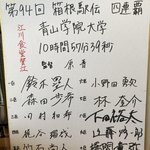 第94回 箱根駅伝 四連覇
青山学院大学
10時間57分39秒
江川食堂賛江
監督 原晋
鈴木塁人
森田歩希
田村和希
梶谷瑠哉
小野田勇次
林奎介
下田裕太